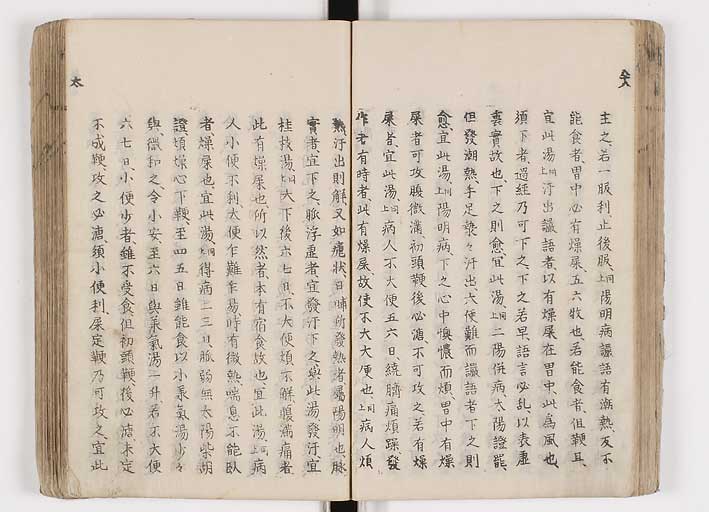 主之若一服利止後服上同陽明病讝語有潮熱反不
能食者胃中必有燥屎五六枚也若能食者但鞕耳
宜此湯上同汗出讝語者以有燥屎在胃中此為風也
須下者過經乃可下之下之若早語言必乱以表虛
裏實故也下之則愈宜此湯上同二陽併病太陽證罷
但發潮熱手足漐々汗出大便難而讝語者下之則
愈宜此湯上同陽明病下之心中懊憹而煩胃中有燥
屎者可攻腹微滿初頭鞕後必溏不可攻之若有燥
屎者宜此湯上同病人不大便五六日繞臍痛煩躁發
作有時者此有燥屎故使不大便也上同病人煩
熱汗出則解又如瘧狀日晡所發熱者屬陽明也脉
實者宜下之脈浮虛者宜發汗下之與此湯發汗宜
桂枝湯上同大下後六七日不大便煩不解腹滿痛者
此有燥屎也所以然者本有宿食故也宜此湯上同病
人小便不利大便乍難乍易時有微熱喘息不能臥
者燥屎也宜此湯上同得病二三日脈弱無太陽柴胡
證煩燥心下鞕至四五日雖能食以小承氣湯少々
與微和之令小安至六日與承氣湯一升若不大便
六七日小便少者雖不受食但初頭鞕後必溏未定
不成鞕攻之必溏須小便利屎定鞕乃可攻之宜此
太